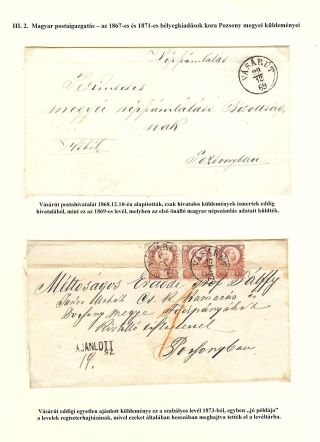 III. 2. Magyar postaigazgatás – az 1867-es és 1871-es bélyegkiadások kora Pozsony megyei küldeményei
Népszámlálás
VÁSÁRÚT
69
megyei népszámlálási
nak
Hivat.
Pozsonyban
Vásárút postahivatalát 1868.12.10-én alapították, csak hivatalos küldemények ismertek eddig
hivatalából, mint ez az 1869-es levél, melyben az első önálló magyar népszámlás adatait küldték.
VÁSÁRÚT
Méltóságos Erdődi Gróf Pálffy
Cs. K. Kamarás és
Posony megye Főispányának
AJÁNLOTT
SZ.
Posonyban
Vásárút eddigi egyetlen ajánlott küldeménye ez a szabályos levél 1873-ból, egyben „jó példája”
a levelek regiszterhajtásának, mivel ezeket általában hosszában meghajtva tették el a levéltárba.